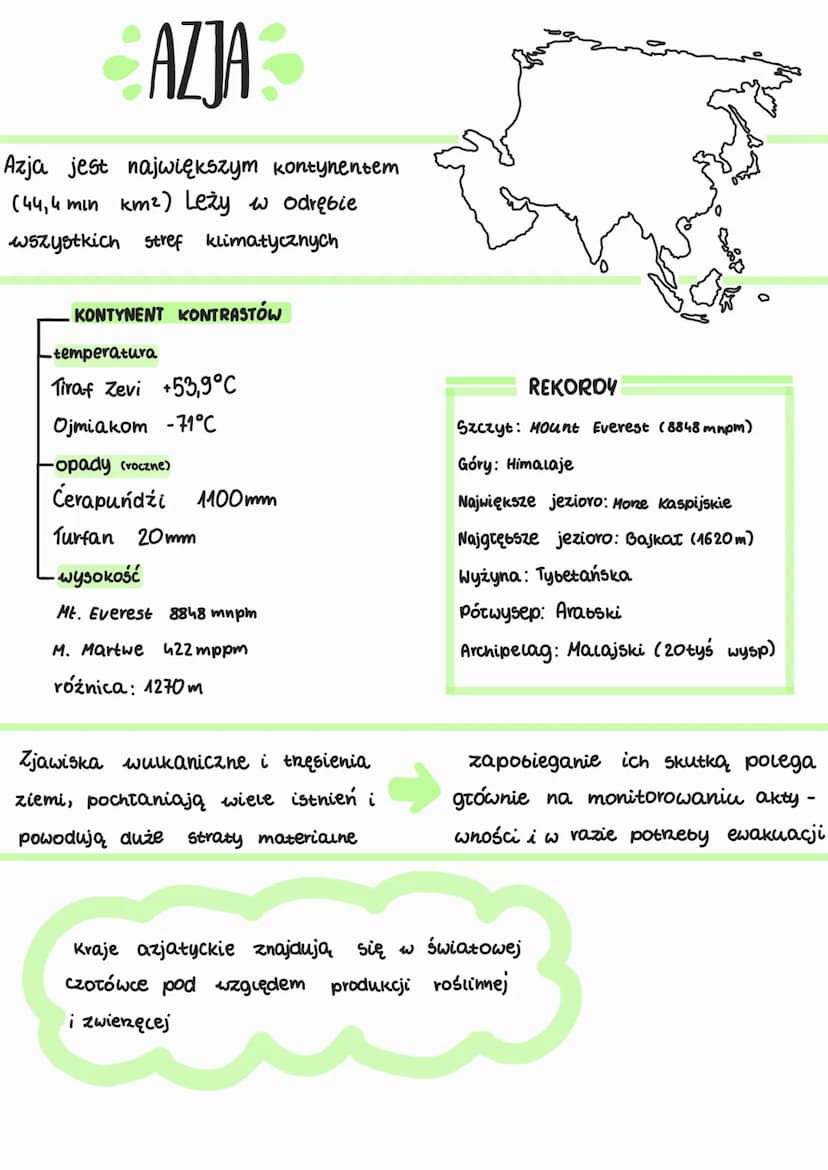 AZJA
Azja jest największym kontynentem
(44,4 mln km²) Leży w odrębie
wszystkich stref klimatycznych
KONTYNENT KONTRASTÓW
temperatura
Tiraf Zevi +53,9°C
Ojmiakom -71°C
opady (roczne)
Ćerapuńdźi 1100mm
Turfan 20mm
wysokość
Mt. Everest 8848 mnpm
M. Martwe 422mppm
różnica: 1270m
REKORDY
Szczyt: Mount Everest (8848mnpm)
Góry: Himalaje
Największe jezioro: Morze Kaspijskie
Najgłębsze jezioro: Bajkał (1620m)
Wyżyna: Tybetańska
Półwysep: Arabski
Archipelag: Malajski (20tyś wysp)
Zjawiska wulkaniczne i trzęsienia
ziemi, pochłaniają wiele istnień i
powodują duże straty materialne
zapobieganie ich skutką polega
głównie na monitorowaniu akty-
wności i w razie potrzeby ewakuacji
Kraje azjatyckie znajdują się w światowej
czołówce pod względem produkcji roślinnej
i zwierzęcej